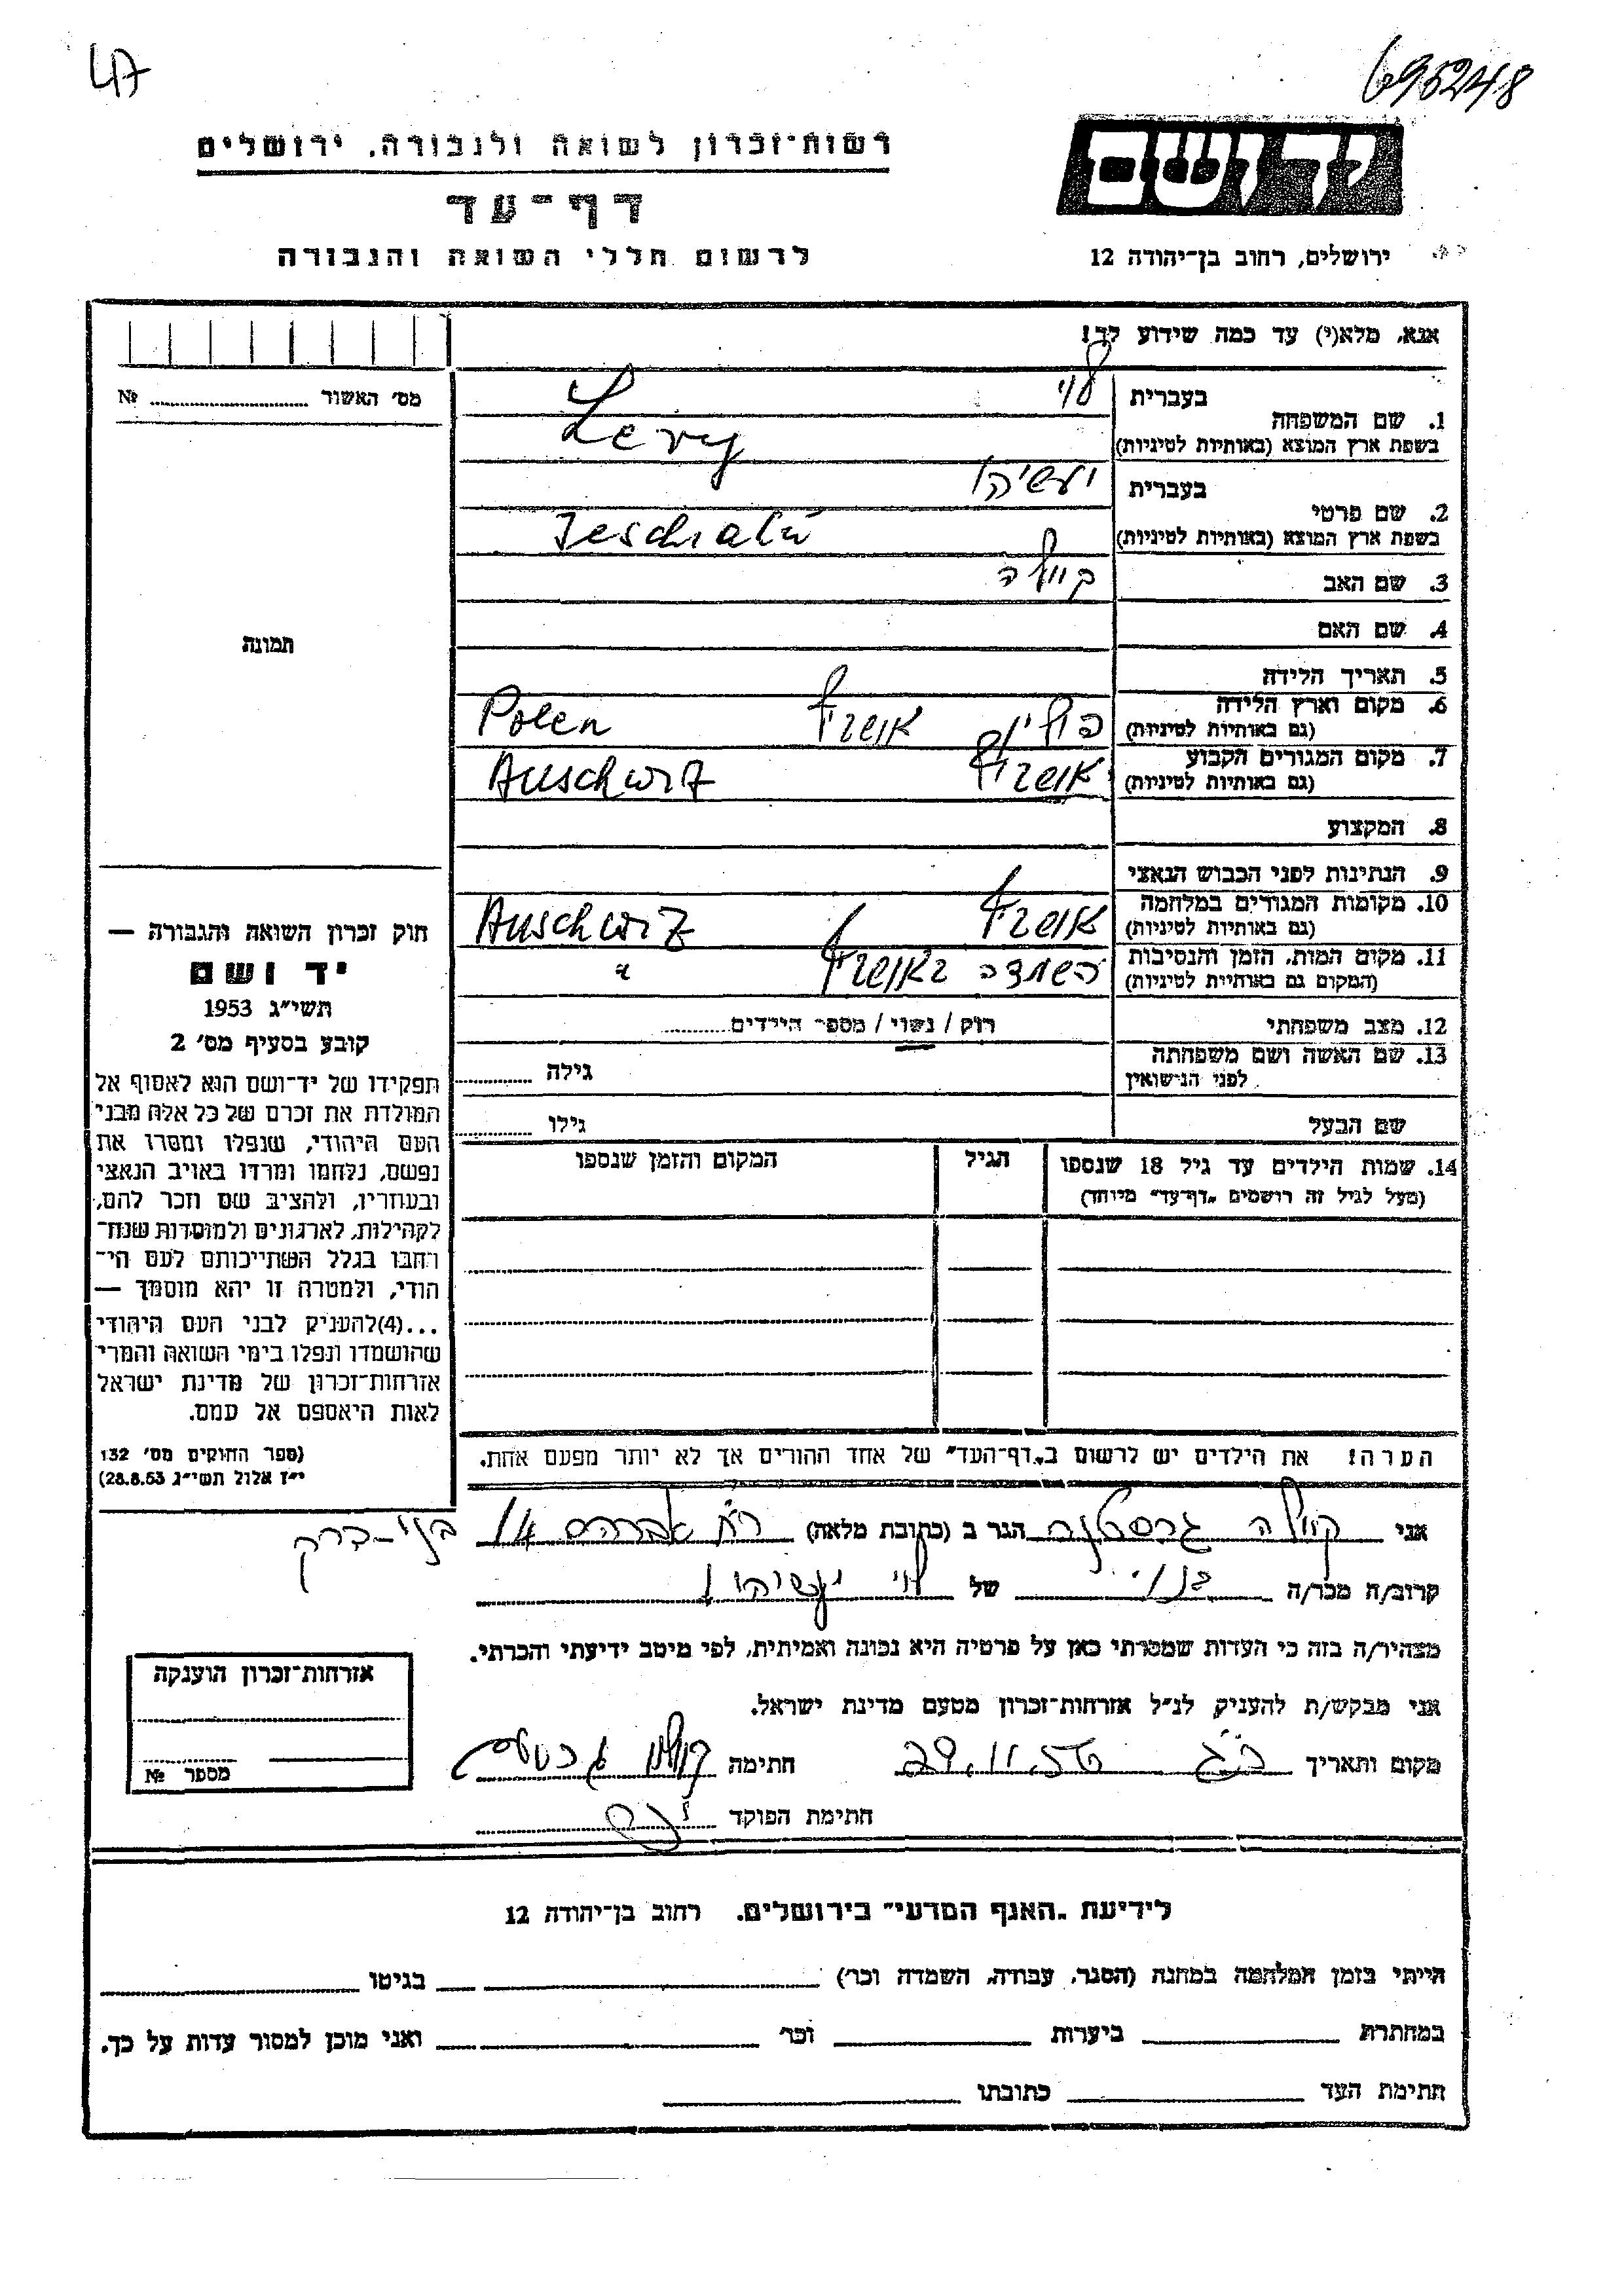 695248
רשות־זכרון לשואה ולגבורה, ירושלים
דף־עד
לרשום חללי השואה והגבורה
יד ושם
ירושלים, רחוב בן־יהודה 12
אנא, מלא(י) עד כמה שידוע לך!
מס׳ האשור № 
1. שם המשפחה
בעברית לוי
בשפת ארץ המוצא (באותיות לטיניות) Levy
2. שם פרטי
בעברית ישעיהו
בשפת ארץ המוצא (באותיות לטיניות)
3. שם האב
4. שם האם
5. תאריך הלידה
6. מקום וארץ הלידה (גם באותיות לטיניות) פולין אושויץ Polen
7. מקום המגורים הקבוע (גם באותיות לטיניות) אושויץ Auschwitz
8. המקצוע
9. הנתינות לפני הכבוש הנאצי
10. מקומות המגורים במלחמה (גם באותיות לטיניות) אושויץ Auschwitz
11. מקום המות, הזמן והנסיבות (המקום גם באותיות לטיניות) השמדה באושויץ "
12. מצב משפחתי רוק / נשוי / מספר הילדים
13. שם האשה ושם משפחתה לפני הנישואין גילה
שם הבעל גילו
14. שמות הילדים עד גיל 18 שנספו
(מעל לגיל זה רושמים „דף־עד״ מיוחד)
הגיל
המקום והזמן שנספו
הערה! את הילדים יש לרשום ב„דף־העד״ של אחד ההורים אך לא יותר מפעם אחת.
תמונה
חוק זכרון השואה והגבורה —
יד ושם
תשי״ג 1953
קובע בסעיף מס׳ 2
תפקידו של יד־ושם הוא לאסוף אל
המולדת את זכרם של כל אלה מבני
העם היהודי, שנפלו ומסרו את
נפשם, נלחמו ומרדו באויב הנאצי
ובעוזריו, ולהציב שם וזכר להם,
לקהילות, לארגונים ולמוסדות שנח־
רבו בגלל השתייכותם לעם הי־
הודי, ולמטרה זו יהא מוסמך —
...(4)להעניק לבני העם היהודי
שהושמדו ונפלו בימי השואה והמרי
אזרחות־זכרון של מדינת ישראל
לאות היאספם אל עמם.
(ספר החוקים מס׳ 132
י״ז אלול תשי״ג 28.8.53)
אני הגר ב (כתובת מלאה) 14 בני-ברק
קרוב/ה מכר/ה של לוי ישעיהו
מצהיר/ה בזה כי העדות שמסרתי כאן על פרטיה היא נכונה ואמיתית, לפי מיטב ידיעתי והכרתי.
אני מבקש/ת להעניק לנ״ל אזרחות־זכרון מטעם מדינת ישראל.
מקום ותאריך ב״ב 29.11.56 חתימה
חתימת הפוקד
אזרחות־זכרון הוענקה
מספר №
לידיעת „האגף המדעי״ בירושלים, רחוב בן־יהודה 12
הייתי בזמן המלחמה במחנה (הסגר, עבודה, השמדה וכו׳) בגיטו
במחתרת ביערות וכו׳ ואני מוכן למסור עדות על כך.
חתימת העד כתובתו